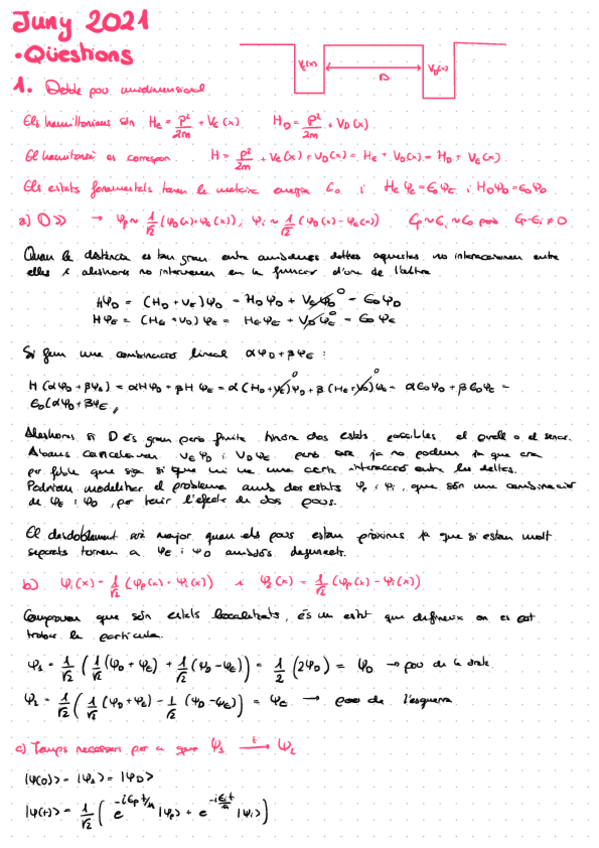 Juny 2021
• Qüestions
V_E(x) D V_D(x)
1. Doble pou unidimensional
Els hamiltonians són H_E = p²/2m + V_E(x) H_D = p²/2m + V_D(x)
El hamiltonià es correspon H = p²/2m + V_E(x) + V_D(x) = H_E + V_D(x) = H_D + V_E(x)
Els estats fonamentals tenen la mateixa energia E_0 i H_E φ_E = E_0 φ_E i H_D φ_D = E_0 φ_D
a) D>> → φ_p ~ 1/√2 (φ_D(x) + φ_E(x)), φ_i ~ 1/√2 (φ_D(x) - φ_E(x)) E_p ~ E_i ~ E_0 però E_p - E_i ≠ 0
Quan la distància es tan gran entre ambdues deltes aquestes no interaccionen entre
elles i aleshores no intervenen en la funció d'ona de l'altra
Hφ_D = (H_D + V_E)φ_D = H_D φ_D + V_E φ_D⁰ = E_0 φ_D
Hφ_E = (H_E + V_D)φ_E = H_E φ_E + V_D φ_E⁰ = E_0 φ_E
Si fem una combinació lineal αφ_D + βφ_E :
H(αφ_D + βφ_E) = αHφ_D + βHφ_E = α(H_D + V_E⁰)φ_D + β(H_E + V_D⁰)φ_E = αE_0φ_D + βE_0φ_E =
E_0(αφ_D + βφ_E
Aleshores si D és gran però finita tindré dos estats possibles el parell o el senar.
Abans cancelàvem V_E φ_D i V_D φ_E però ara ja no podem ja que ara
per feble que sigui si que hi ha una certa interacció entre les deltes.
Podríem modelitzar el problema amb dos estats φ_p i φ_i, que són una combinació
de φ_E i φ_D, per tenir l'efecte de dos pous.
El desdoblament serà major quan els pous estan pròxims ja que si estan molt
separats tornem a φ_E i φ_D ambdós degenerats.
b) φ_1(x) = 1/√2 (φ_p(x) + φ_i(x)) i φ_2(x) = 1/√2 (φ_p(x) - φ_i(x))
Comprovem que són estats localitzats, és un estat que defineix on es pot
trobar la partícula.
φ_1 = 1/√2 (1/√2 (φ_D + φ_E) + 1/√2 (φ_D - φ_E)) = 1/2 (2φ_D) = φ_D → pou de la dreta
φ_2 = 1/√2 (1/√2 (φ_D + φ_E) - 1/√2 (φ_D - φ_E)) = φ_E → pou de l'esquerra
c) Temps necessari per a que φ_1 →^t φ_2
|ψ(0)> = |φ_1> = |φ_D>
|ψ(t)> = 1/√2 (e^{-iE_p t/ħ} |φ_p> + e^{-iE_i t/ħ} |φ_i>)